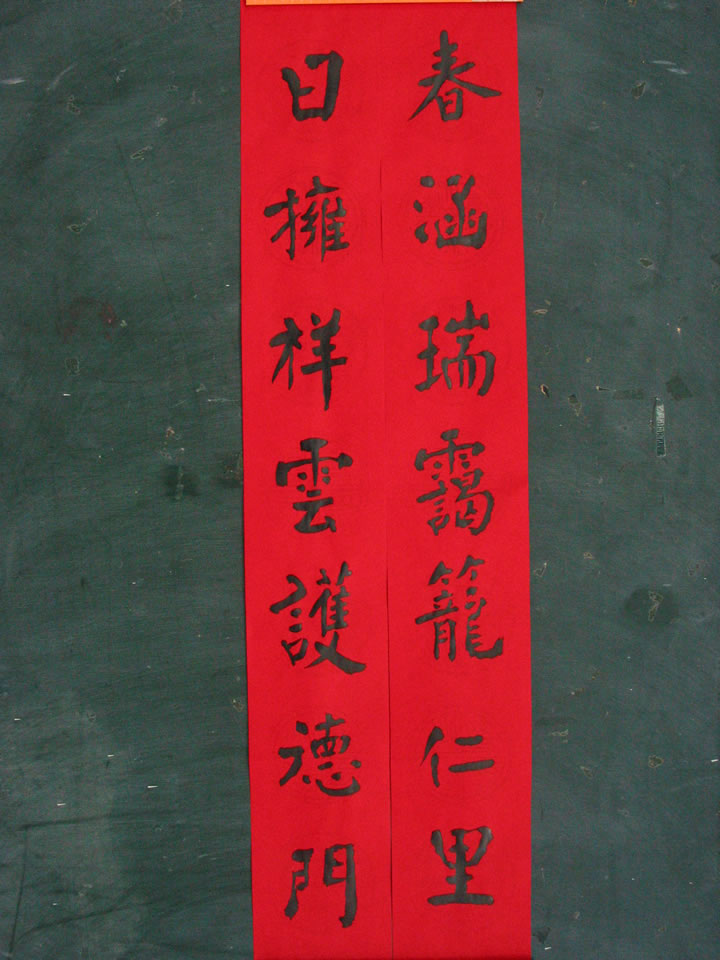 春涵瑞靄籠仁里
日擁样雲護德門